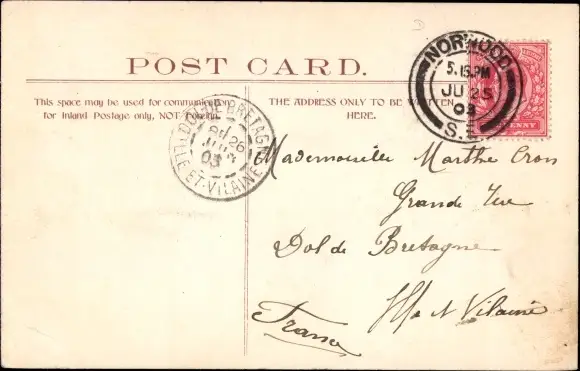 POST CARD.
This space may be used for communication
for Inland Postage only, NOT Foreign.
THE ADDRESS ONLY TO BE WRITTEN
HERE.
NORWOOD
5.15PM
JU 25
03
S.E.
PENNY
DOL-DE-BRETAGNE
26
03
ILLE-ET-VILAINE
Mademoiselle Marthe Cron
Grande Rue
Dol de Bretagne
Ille et Vilaine
France